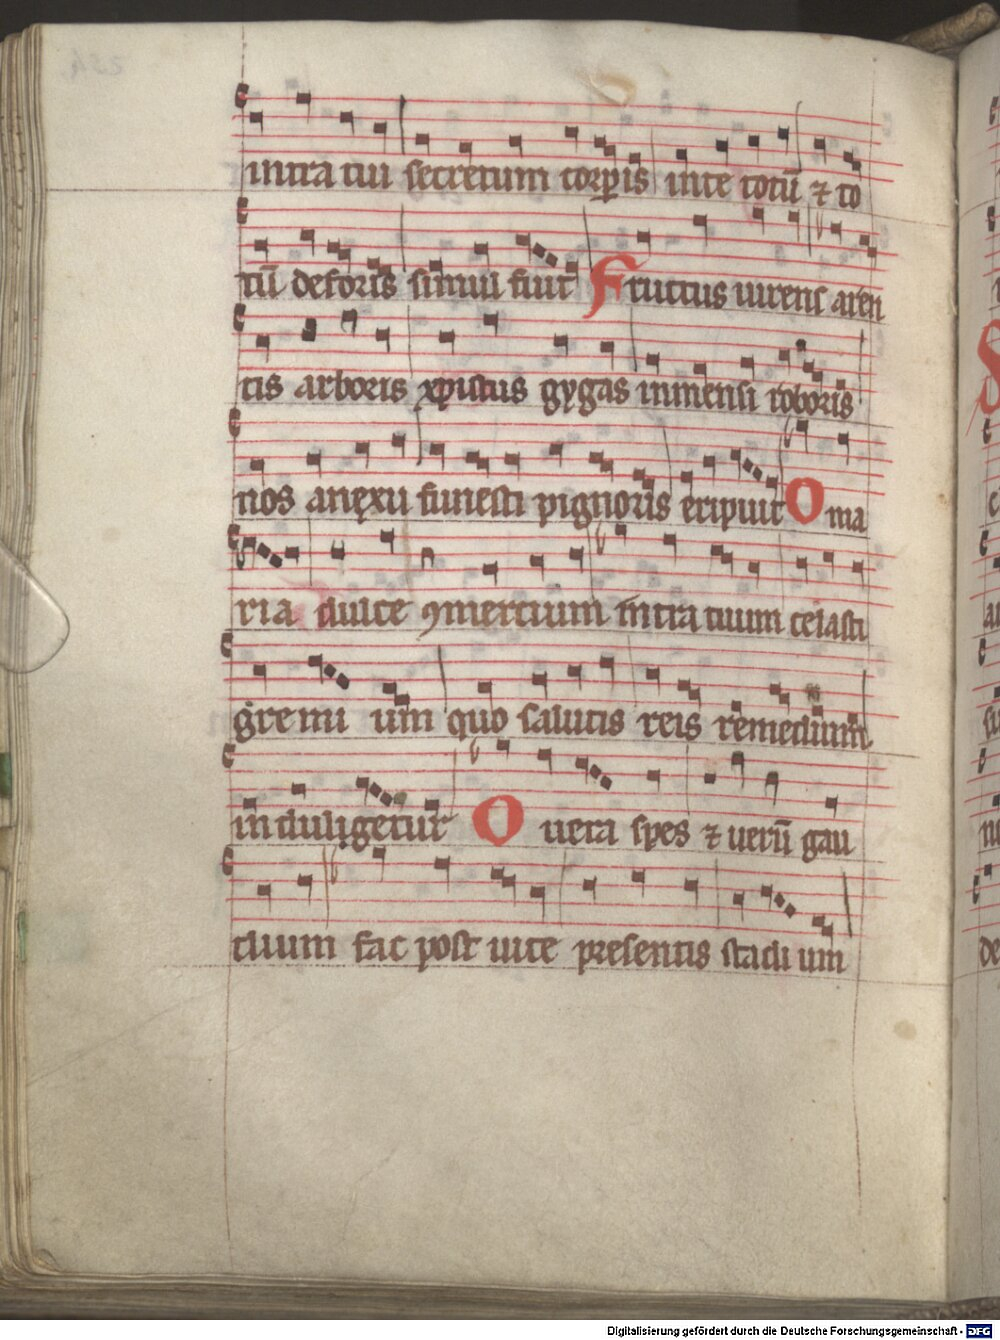 intra tui secretum corꝑis in te totū ⁊ to
tū deforis simul fuit Fructus uirens aren
tis arboris xpistus gygas inmensi roboris
nos anęxu funesti pignoris eripuit O ma
ria dulce ꝯmercium intra tuum celasti
gremi um quo salutis reis remedium
indulgetur O uera spes ⁊ uerū gau
dium fac post uite presentis stadi um
Digitalisierung gefördert durch die Deutsche Forschungsgemeinschaft - DFG